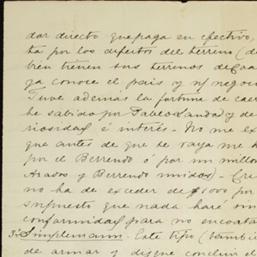 dar directo que paga en efectivo,
ha por los defectos del terreno (de
bren tienen sus terrenos de
ya conoce el país y n/ negoci
Tuve además la fortuna de caer
he sabido por Pablo y de
riosidad é interés - No me ex
que antes de que se vaya me h
por el Berrendo ó por un millon
y Berrendo unidos. -
no ha de exceder de $ 5000 por
supuesto que nada haré
conformidad para no
Simplemann. Este tipo (tambie
de armar y